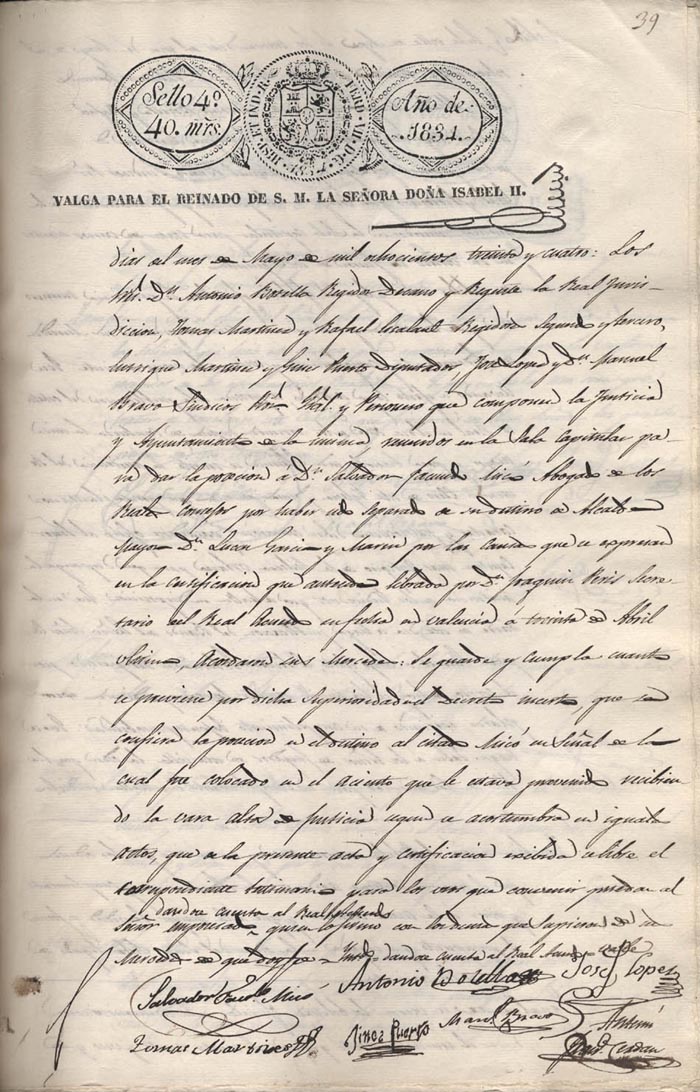 39
Sello 4º
40. mrs.
HISP. ET IND. R. FERD. VII D. G. 1834
Año de
1834.
VALGA PARA EL REINADO DE S. M. LA SEÑORA DOÑA ISABEL II.
dias del mes de Mayo de mil ochocientos treinta y cuatro: Los
Sres. Dn. Antonio Regidor Decano y Regente la Real Juris-
diccion, Tomas Martinez y Rafael Regidores Segundo y tercero,
Enrique Martinez y Gines Puerto Diputados, Jose Lopez y Dn. Manuel
Bravo Sindicos Pror. Gral. y Personero que componen la Justicia
y Ayuntamiento de la misma, reunidos en la Sala Capitular pa-
ra dar la posecion á Dn. Salvador Micó Abogado de los
Reales Consejos por haber sido separado de su destino de Alcalde
Mayor Dn. Juan Garcia y Marin por las causas que se expresan
en la certificacion que antecede librada por Dn. Joaquin Peris Secre-
tario del Real Acuerdo su fecha en Valencia á treinta de Abril
ultimo, Acordaron sus Mercedes: Se guarde y cumpla cuanto
se previene por dicha Superioridad en el Decreto inserto, que se
confiera la posecion en el destino al citado Micó en Señal de la
cual fue colocado en el aciento que le estava prevenido recibien
do la vara alta de Justicia segun se acostumbra en iguales
actos, que de la presente acta y certificacion recibida se libre el
correspondiente testimonio para los usos que convenir puedan al
dandose cuenta al Real Acuerdo
Señor quien lo firmo con los demas que supieron de sus
Mercedes de que doy fe = dandose cuenta al Real Acuerdo = vale
Salvador Facdo. Micó
Antonio
Jose Lopez
Tomas Martinez
Gines Puerto
Manl. Bravo
Antemi
Cerdan